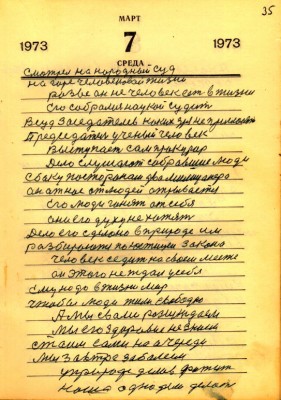 35
МАРТ
1973 7 1973
СРЕДА
Смотрел на народный суд
на горе человеческой жизни
разве он не человек сот в жизни
Его собрались наукой судить
В суд заседателев коих зря не
Председатель ученый человек
Выступает сам прокурор
Дело слушают собравшие люди
Сбоку по сторонам два милиционера
он от них отводей
Его люди гонят от себя
они его духу не хотят
Дело его сделано в природе им
разбирают по юстиции закона
Человек сидит на своем месте
он этого не ждал у себя
Ему надо в жизни мир
чтобы люди жили свободно
А мы с вами рассуждаем
Мы его здоровье не знаем
стали сами на очереди
Мы завтра заболеем
у природе делов хватит
наша одно им делать